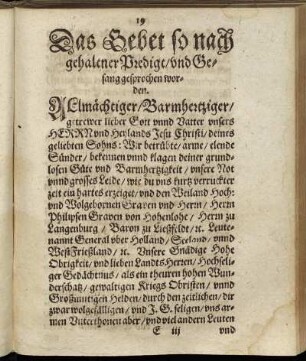 19
Das Gebet so nach
gehaltener Predigt/vnd Ge-
sang gesprochen wor-
den.
ALlmächtiger/Barmhertziger/
getrewer lieber Gott vnnd Vatter vnsers
HERRN vnd Heylands Jesu Christi/deines
geliebten Sohns: Wir betrübte/arme/elende
Sünder/bekennen vnnd klagen deiner grund-
losen Güte vnd Barmhertzigkeit/vnsere Not
vnnd grosses Leide/wie du vns kurtz verruckter
zeit ein hartes erzeiget/vnd den Weiland Hoch-
vnd Wolgebornen Graven vnd Herrn/Herrn
Philipsen Graven von Hohenlohe/Herrn zu
Langenburg/Baron zu Liessfeldt/ꝛc. Leute-
nannt General vber Holland/Seeland/vnnd
West Frießland/ꝛc. Unsere Gnädige Hohe
Obrigkeit/vnd lieben Landts Herrn/Hochseli-
ger Gedächtnus/als ein thewren hohen Wun-
derschatz/gewaltigen Kriegs Obristen/vnnd
Großmütigen Helden/durch den zeitlichen/dir
zwar wolgefälligen/vnd J. G. seligen/vns ar-
men Vnterthonen aber/vnd viel andern Leuten
E iij
vnd